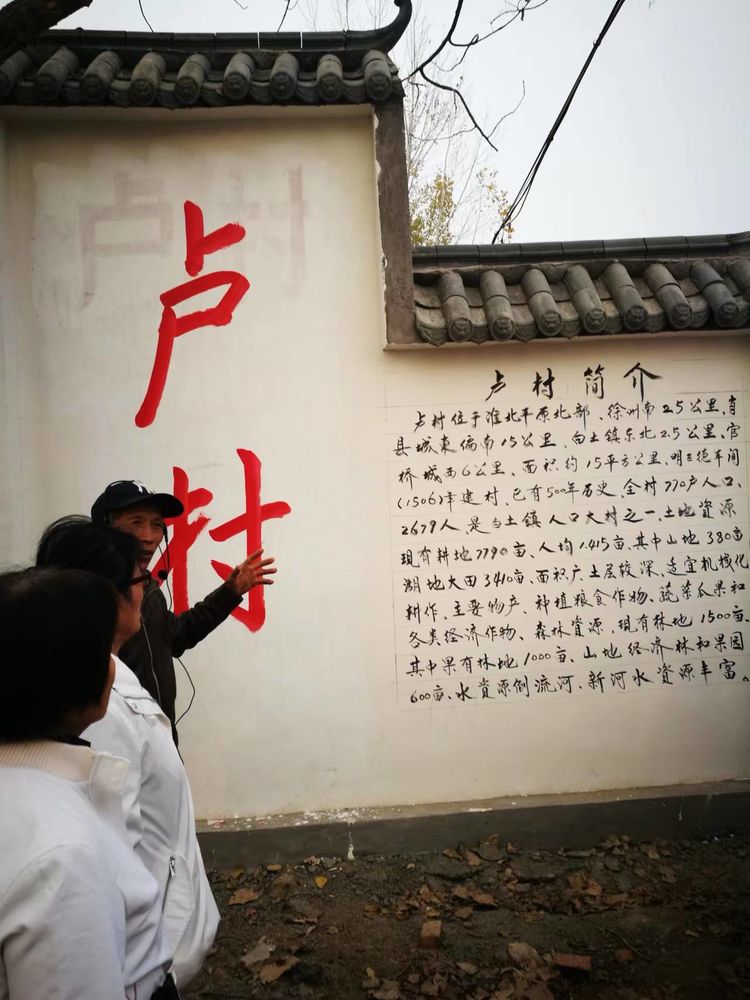 卢村
卢村
卢村简介
卢村位于淮北平原北部、徐州南25公里、肖
县城東偏南15公里、白土镇东北2.5公里、官
桥城西6公里、面积约15平方公里、明正德年间
(1506)年建村、已有500年历史、全村770户人口、
2679人、是白土镇人口大村之一、土地資源
現有耕地7790亩、人均1.415亩、其中山地380亩
湖地大田3410亩、面积广、土层較深、适宜机械化
耕作、主要物产、种植粮食作物、蔬菜瓜果和
各类经济作物、森林資源、現有林地1500亩、
其中果有林地1000亩、山地经济林和果园
600亩、水資源倒流河、新河水資源丰富。